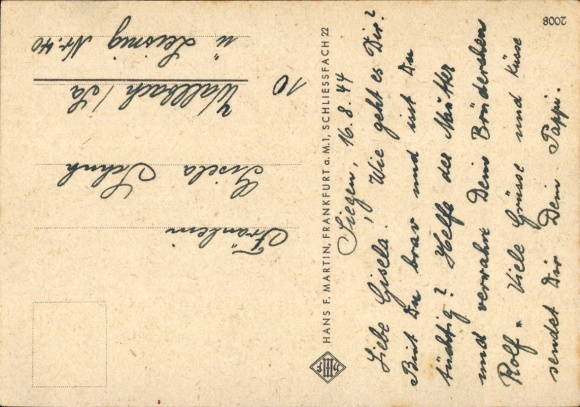 Siegen, 16.8.44
Liebe Gisela! Wie geht es Dir?
Bist Du brav und ist Du
tüchtig? Helfe der Mutter
und verwahre Dein Brüderchen
Rolf. Viele Grüsse und Küsse
sendet Dir Dein Pappi.
HANS F. MARTIN, FRANKFURT a.M.1, SCHLIESSFACH 22
2008
Fräulein
Gisela Schuh
10
Wallbach / Sa
ü Leisnig Nr. 40